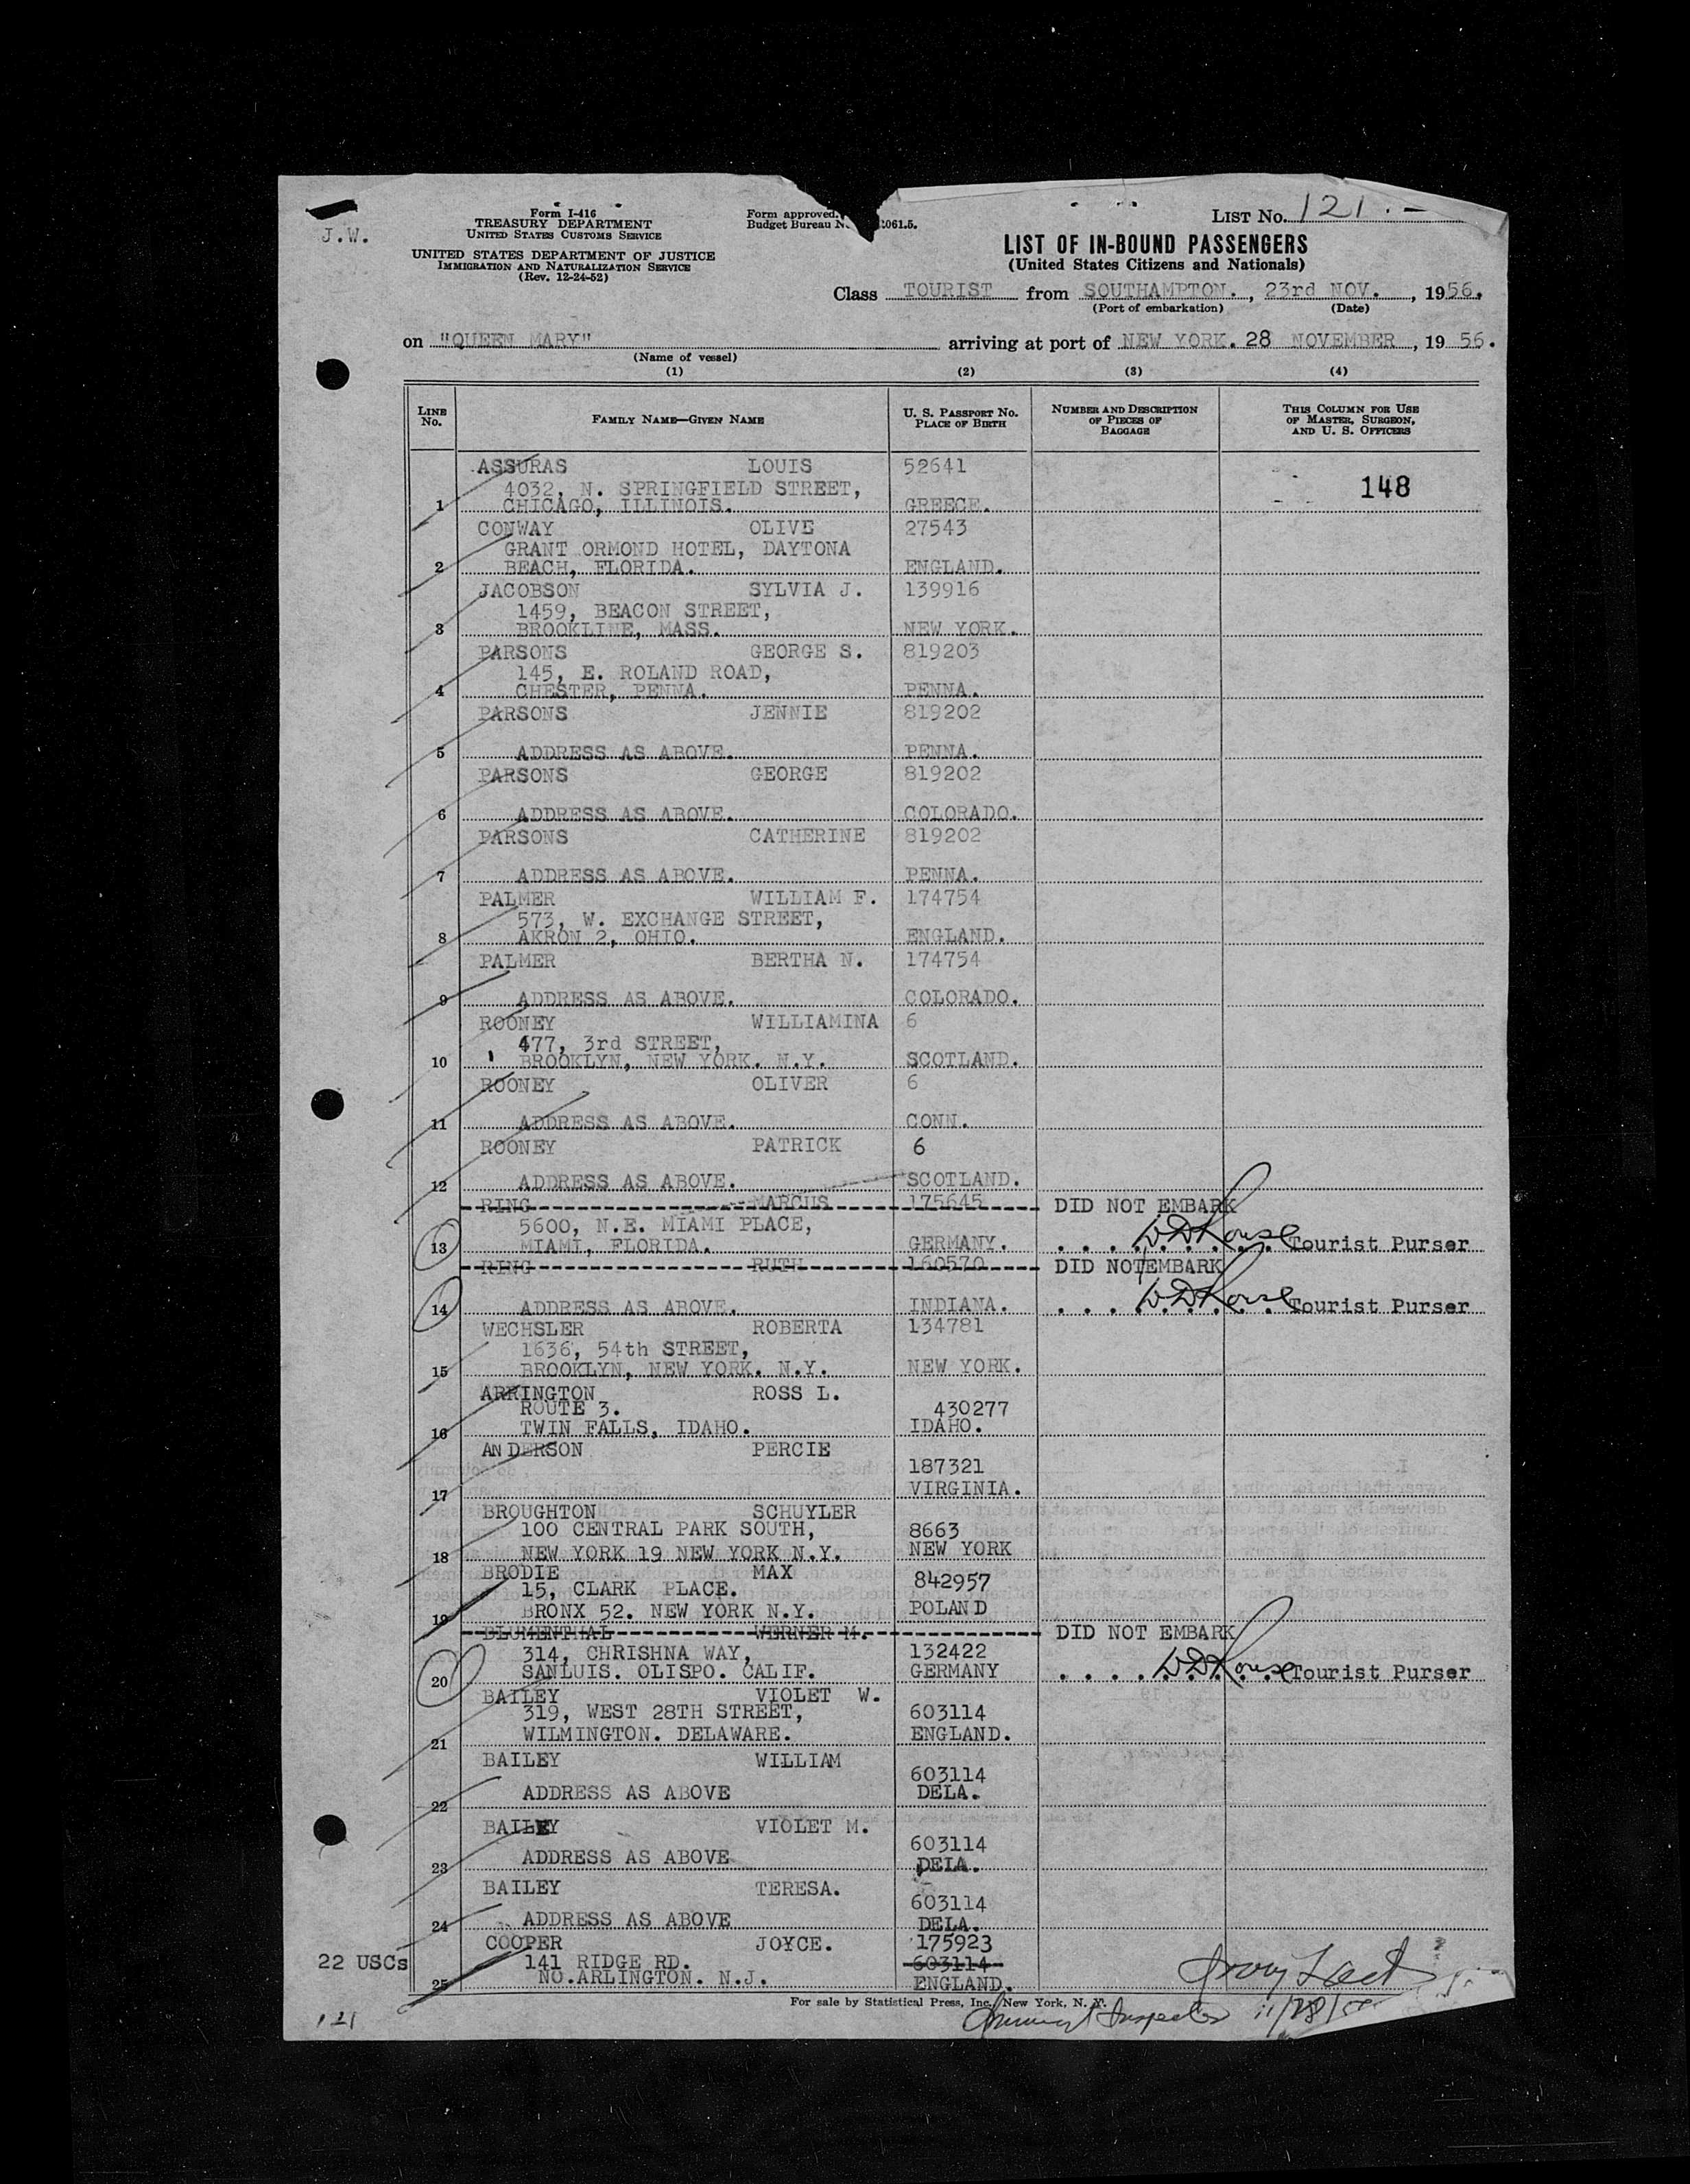 J.W.
Form I-416
TREASURY DEPARTMENT
UNITED STATES CUSTOMS SERVICE
UNITED STATES DEPARTMENT OF JUSTICE
IMMIGRATION AND NATURALIZATION SERVICE
(Rev. 12-24-52)
Form approved.
Budget Bureau 061.5.
LIST No. 121.-
LIST OF IN-BOUND PASSENGERS
(United States Citizens and Nationals)
Class TOURIST from SOUTHAMPTON., 23rd NOV., 1956.
(Port of embarkation) (Date)
on "QUEEN MARY" arriving at port of NEW YORK. 28 NOVEMBER, 19 56.
(Name of vessel)
(1) (2) (3) (4)
LINE No. FAMILY NAME—GIVEN NAME U. S. PASSPORT No. PLACE OF BIRTH NUMBER AND DESCRIPTION OF PIECES OF BAGGAGE THIS COLUMN FOR USE OF MASTER, SURGEON, AND U. S. OFFICERS
ASSURAS LOUIS 52641
4032, N. SPRINGFIELD STREET, 148
1 CHICAGO, ILLINOIS. GREECE.
CONWAY OLIVE 27543
GRANT ORMOND HOTEL, DAYTONA
2 BEACH, FLORIDA. ENGLAND.
JACOBSON SYLVIA J. 139916
1459, BEACON STREET,
3 BROOKLINE, MASS. NEW YORK.
PARSONS GEORGE S. 819203
145, E. ROLAND ROAD,
4 CHESTER, PENNA. PENNA.
PARSONS JENNIE 819202
5 ADDRESS AS ABOVE. PENNA.
PARSONS GEORGE 819202
6 ADDRESS AS ABOVE. COLORADO.
PARSONS CATHERINE 819202
7 ADDRESS AS ABOVE. PENNA.
PALMER WILLIAM F. 174754
573, W. EXCHANGE STREET,
8 AKRON 2, OHIO. ENGLAND.
PALMER BERTHA N. 174754
9 ADDRESS AS ABOVE. COLORADO.
ROONEY WILLIAMINA 6
477, 3rd STREET,
10 BROOKLYN, NEW YORK. N.Y. SCOTLAND.
ROONEY OLIVER 6
11 ADDRESS AS ABOVE. CONN.
ROONEY PATRICK 6
12 ADDRESS AS ABOVE. SCOTLAND.
RING MARCUS 175645 DID NOT EMBARK
5600, N.E. MIAMI PLACE,
13 MIAMI, FLORIDA. GERMANY. Tourist Purser
RING RUTH 160570 DID NOT EMBARK
14 ADDRESS AS ABOVE. INDIANA. Tourist Purser
WECHSLER ROBERTA 134781
1636, 54th STREET,
15 BROOKLYN, NEW YORK. N.Y. NEW YORK.
ARRINGTON ROSS L.
ROUTE 3. 430277
16 TWIN FALLS, IDAHO. IDAHO.
ANDERSON PERCIE
187321
17 VIRGINIA.
BROUGHTON SCHUYLER
100 CENTRAL PARK SOUTH, 8663
18 NEW YORK 19 NEW YORK N.Y. NEW YORK
BRODIE MAX 842957
15, CLARK PLACE.
19 BRONX 52. NEW YORK N.Y. POLAND
BLUMENTHAL WERNER M. DID NOT EMBARK
314, CHRISHNA WAY, 132422
20 SANLUIS. OLISPO. CALIF. GERMANY Tourist Purser
BAILEY VIOLET W.
319, WEST 28TH STREET, 603114
21 WILMINGTON. DELAWARE. ENGLAND.
BAILEY WILLIAM
603114
22 ADDRESS AS ABOVE DELA.
BAILEY VIOLET M.
603114
23 ADDRESS AS ABOVE DELA.
BAILEY TERESA.
603114
24 ADDRESS AS ABOVE DELA.
COOPER JOYCE. 175923
22 USCs 141 RIDGE RD. 603114
25 NO.ARLINGTON. N.J. ENGLAND.
For sale by Statistical Press, Inc. New York, N. Y.
Immigrant Inspector 11/28/5
121